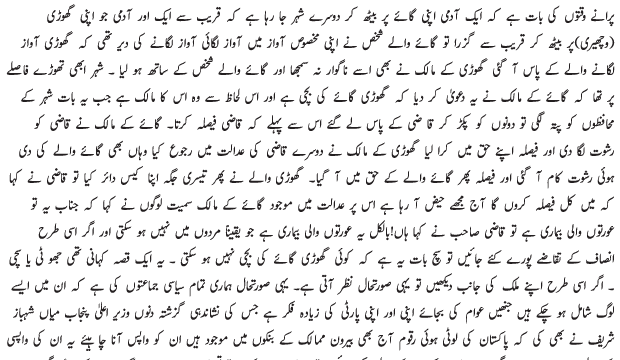 پرانے وقتوں کی بات ہے کہ ایک آدمی اپنی گائے پر بیٹھ کر دوسرے شہر جا رہا ہے کہ قریب سے ایک اور آدمی جو اپنی گھوڑی
(وچھیری)پر بیٹھ کر قریب سے گزرا تو گائے والے شخص نے اپنی مخصوص آواز میں آواز لگائی آواز لگانے کی دیر تھی کہ گھوڑی آواز
لگانے والے کے پاس آ گئی گھوڑی کے مالک نے بھی اسے ناگوار نہ سمجھا اور گائے والے شخص کے ساتھ ہو لیا ۔ شہر ابھی تھوڑے فاصلے
پر تھا کہ گائے کے مالک نے یہ دعویٰ کر دیا کہ گھوڑی گائے کی بچی ہے اور اس لحاظ سے وہ اس کا مالک ہے جب یہ بات شہر کے
محافظوں کو پتہ لگی تو دونوں کو پکڑ کر قا ضی کے پاس لے گئے اس سے پہلے کہ قاضی فیصلہ کرتا۔ گائے کے مالک نے قاضی کو
رشوت لگا دی اور فیصلہ اپنے حق میں کرا لیا گھوڑی کے مالک نے دوسرے قاضی کی عدالت میں رجوع کیا وہاں بھی گائے والے کی دی
ہوئی رشوت کام آ گئی اور فیصلہ پھر گائے والے کے حق میں آ گیا۔ گھوڑی والے نے پھر تیسری جگہ اپنا کیس دائر کیا تو قاضی نے کہا
کہ میں کل فیصلہ کروں گا آج مجھے حیض آ رہا ہے اس پر عدالت میں موجود گائے کے مالک سمیت لوگوں نے کہا کہ جناب یہ تو
عورتوں والی بیماری ہے تو قاضی صاحب نے کہا ہاں!بالکل یہ عورتوں والی بیماری ہے جو یقینا مردوں میں نہیں ہو سکتی اور اگر اسی طرح
انصاف کے تقاضے پورے کئے جائیں تو سچ بات یہ ہے کہ کوئی گھوڑی گائے کی بچی نہیں ہو سکتی ۔ یہ ایک قصہ کہانی تھی جھو ٹی یا سچی
۔ اگر اسی طرح اپنے ملک کی جانب دیکھیں تو یہی صورتحال نظر آتی ہے۔ یہی صورتحال ہماری تمام سیاسی جماعتوں کی ہے کہ ان میں ایسے
لوگ شامل ہو چکے ہیں جنھیں عوام کی بجائے اپنی اور اپنی پارٹی کی زیادہ فکر ہے جس کی نشاندہی گزشتہ دنوں وزیر اعلیٰ پنجاب میاں شہباز
شریف نے بھی کی کہ پاکستان کی لوٹی ہوئی رقوم آج بھی بیرون ممالک کے بنکوں میں موجود ہیں ان کو واپس آنا چا ہیئے یہ ان کی واپسی